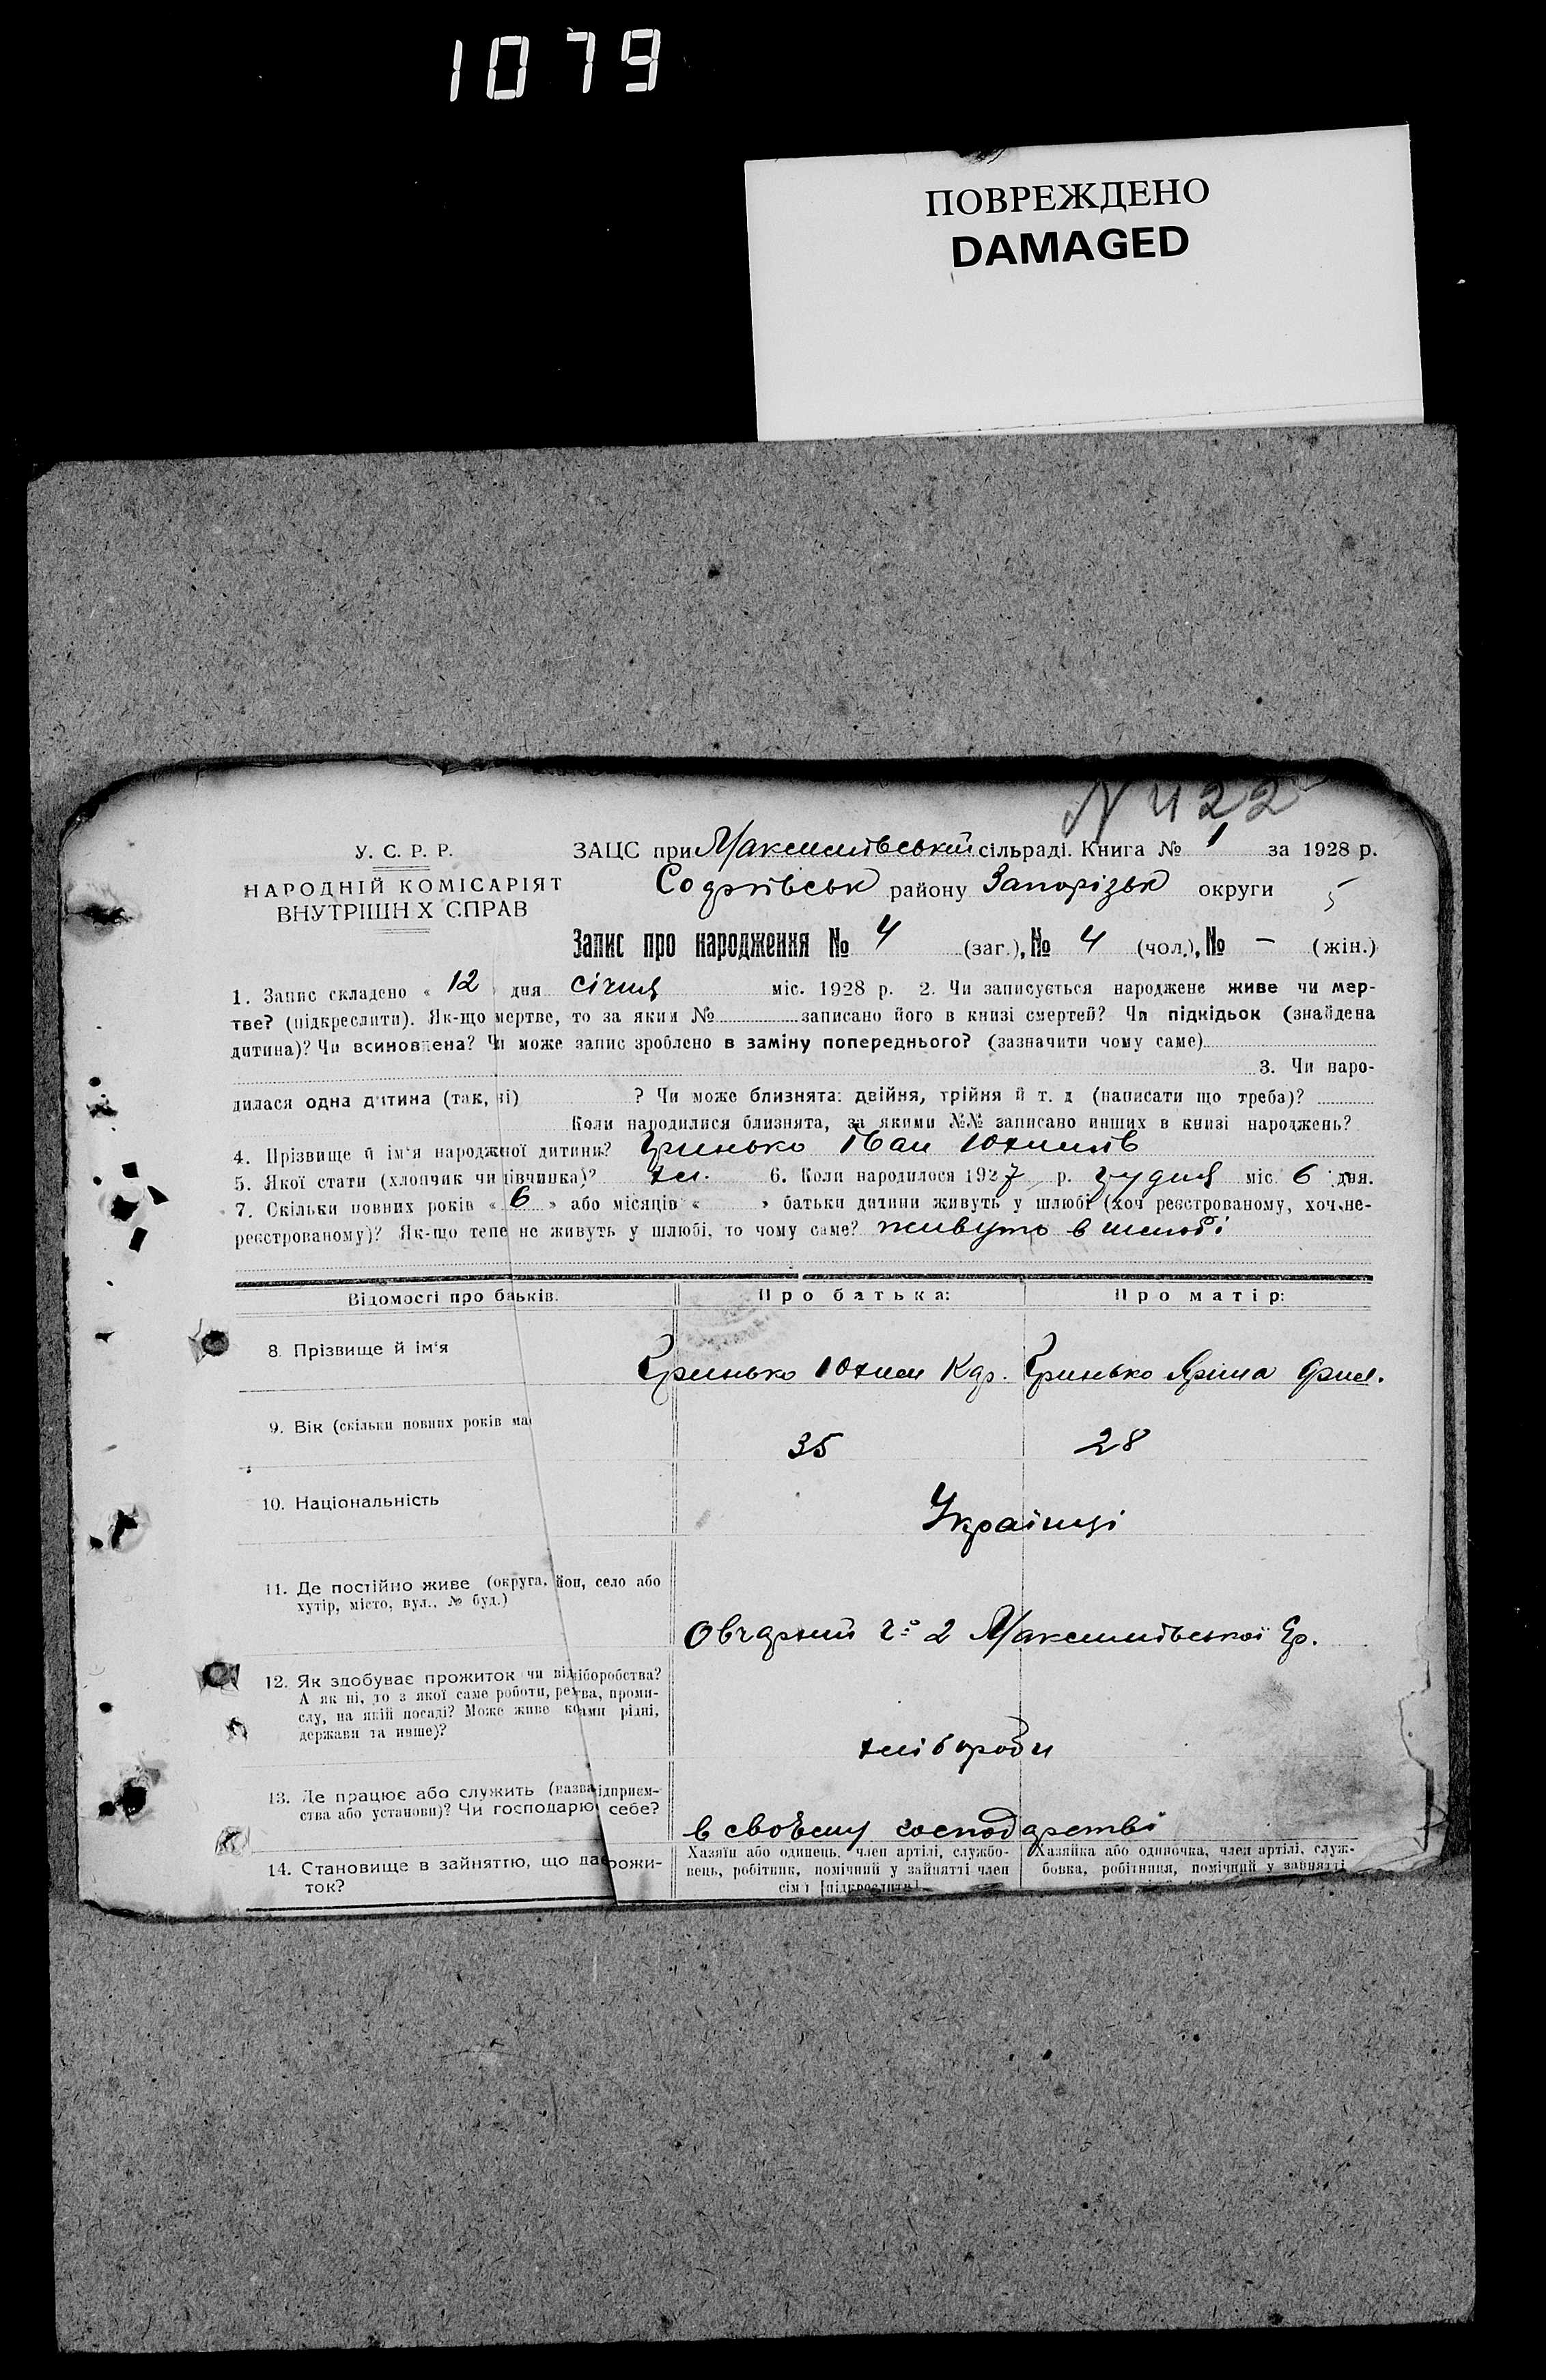 1079
ПОВРЕЖДЕНО
DAMAGED
N 422
У. С. Р. Р.
НАРОДНІЙ КОМІСАРІЯТ
ВНУТРІШН Х СПРАВ
ЗАЦС при Максимівській сільраді. Книга № 1 за 1928 р.
району Запорізьк округи 5
Запис про народження № 4 (заг.), № 4 (чол.), № – (жін.)
1. Запис складено « 12 » дня січня міс. 1928 р. 2. Чи записується народжене живе чи мер-
тве? (підкреслити). Як-що мертве, то за яким № записано його в книзі смертей? Чи підкідьок (знайдена
дитина)? Чи всиновлена? Чи може запис зроблено в заміну попереднього? (зазначити чому саме)
3. Чи наро-
дилася одна дитина (так, ні) ? Чи може близнята: двійня, трійня й т. д (написати що треба)?
Коли народилися близнята, за якими №№ записано инших в книзі народжень?
4. Прізвище й ім'я народженої дитини? Гринько Іван Юхимів
5. Якої стати (хлопчик чи дівчинка)? хл. 6. Коли народилося 1927 р. грудня міс. 6 дня.
7. Скільки повних років « 6 » або місяців « » батьки дитини живуть у шлюбі (хоч реєстрованому, хоч не-
реєстрованому)? Як-що тепе не живуть у шлюбі, то чому саме? живуть в шлюбі
Відомості про батьків. Про батька: Про матір:
8. Прізвище й ім'я Гринько Юхим Гринько Ярина
9. Вік (скільки повних років ма 35 28
10. Національність Українці
11. Де постійно живе (округа, йон, село або
хутір, місто, вул., № буд.)
2 Максимівської
12. Як здобуває прожиток чи від іборобства?
А як ні, то з якої саме роботи, ре ва, проми-
слу, на якій посаді? Може живе ко ами рідні,
держави та инше)?
хлібороби
13. Де працює або служить (назва ідприєм-
ства або установи)? Чи господарю себе?
в своєму господарстві
14. Становище в зайняттю, що да рожи-
ток?
Хазяїн або одинець, член артілі, службо-
вець, робітник, помічний у зайнятті член
сім'ї [підкреслити]
Хазяйка або одиночка, член артілі, служ-
бовка, робітниця, помічний у зайнятті